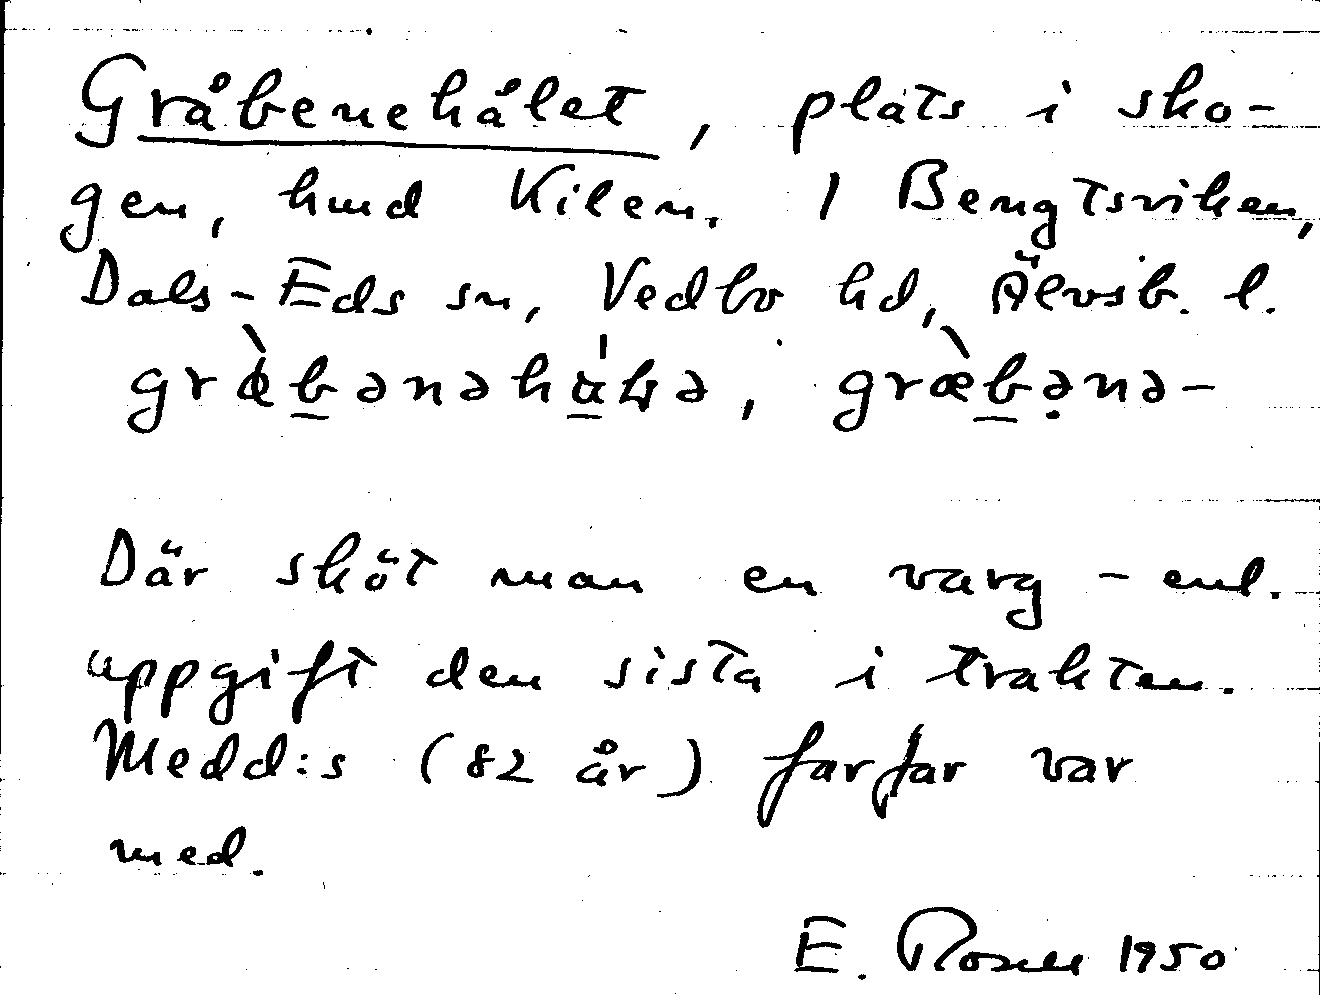 Gråbenehålet, plats i sko-
gen, hund Kilen. / Bengtsviken,
Dals-Eds sn, Vedbo hd, Älvsb. l.
græ̀bənəhɑ́ɫə, græ̀bənə-
Där sköt man en varg - enl.
uppgift den sista i trakten.
Medd:s (82 år) farfar var
med.
E. Rosell 1950